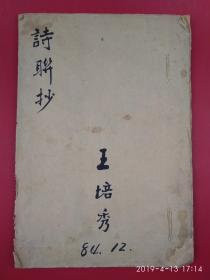 詩聯抄
王培秀
84.12.
2019-4-13 17:14